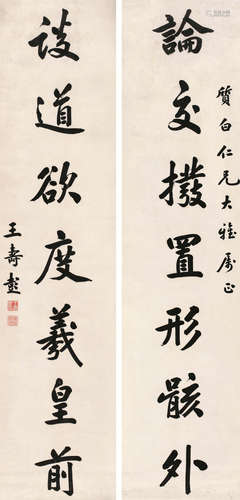 質白仁兄大雅属正
論交撥置形骸外
談道欲度羲皇前
王壽彭